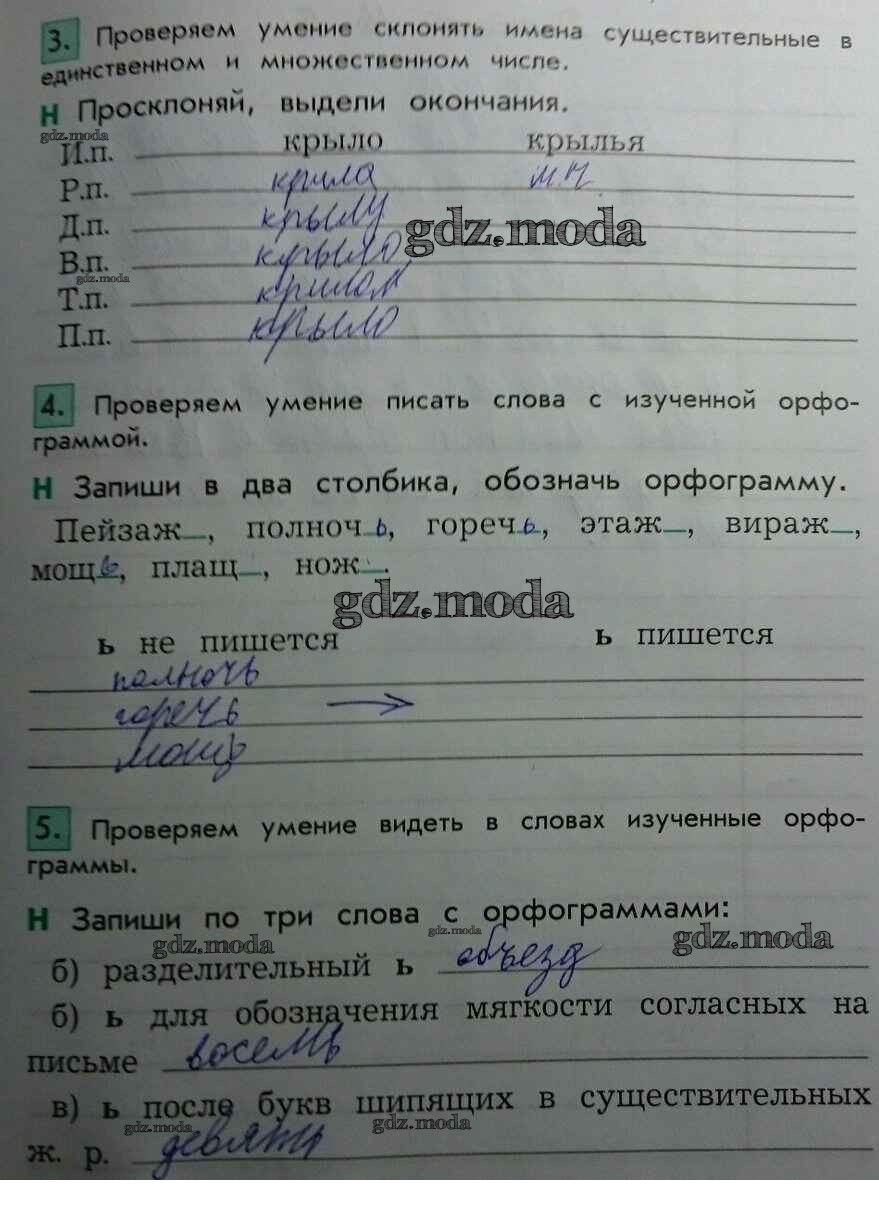 3. Проверяем умение склонять имена существительные в
единственном и множественном числе.
Н Просклоняй, выдели окончания.
gdz.moda
И.п. крыло крылья
Р.п. крила м.ч.
Д.п. крылу gdz.moda
В.п. крыло
gdz.moda
Т.п. крилом
П.п. крыло
4. Проверяем умение писать слова с изученной орфо-
граммой.
Н Запиши в два столбика, обозначь орфограмму.
Пейзаж_, полночь, горечь, этаж_, вираж_,
мощь, плащ_, нож_.
gdz.moda
ь не пишется ь пишется
полночь
горечь →
мощь
5. Проверяем умение видеть в словах изученные орфо-
граммы.
Н Запиши по три слова с орфограммами:
gdz.moda gdz.moda gdz.moda
б) разделительный ь объезд
б) ь для обозначения мягкости согласных на
письме восемь
в) ь после букв шипящих в существительных
gdz.moda gdz.moda
ж. р. девять